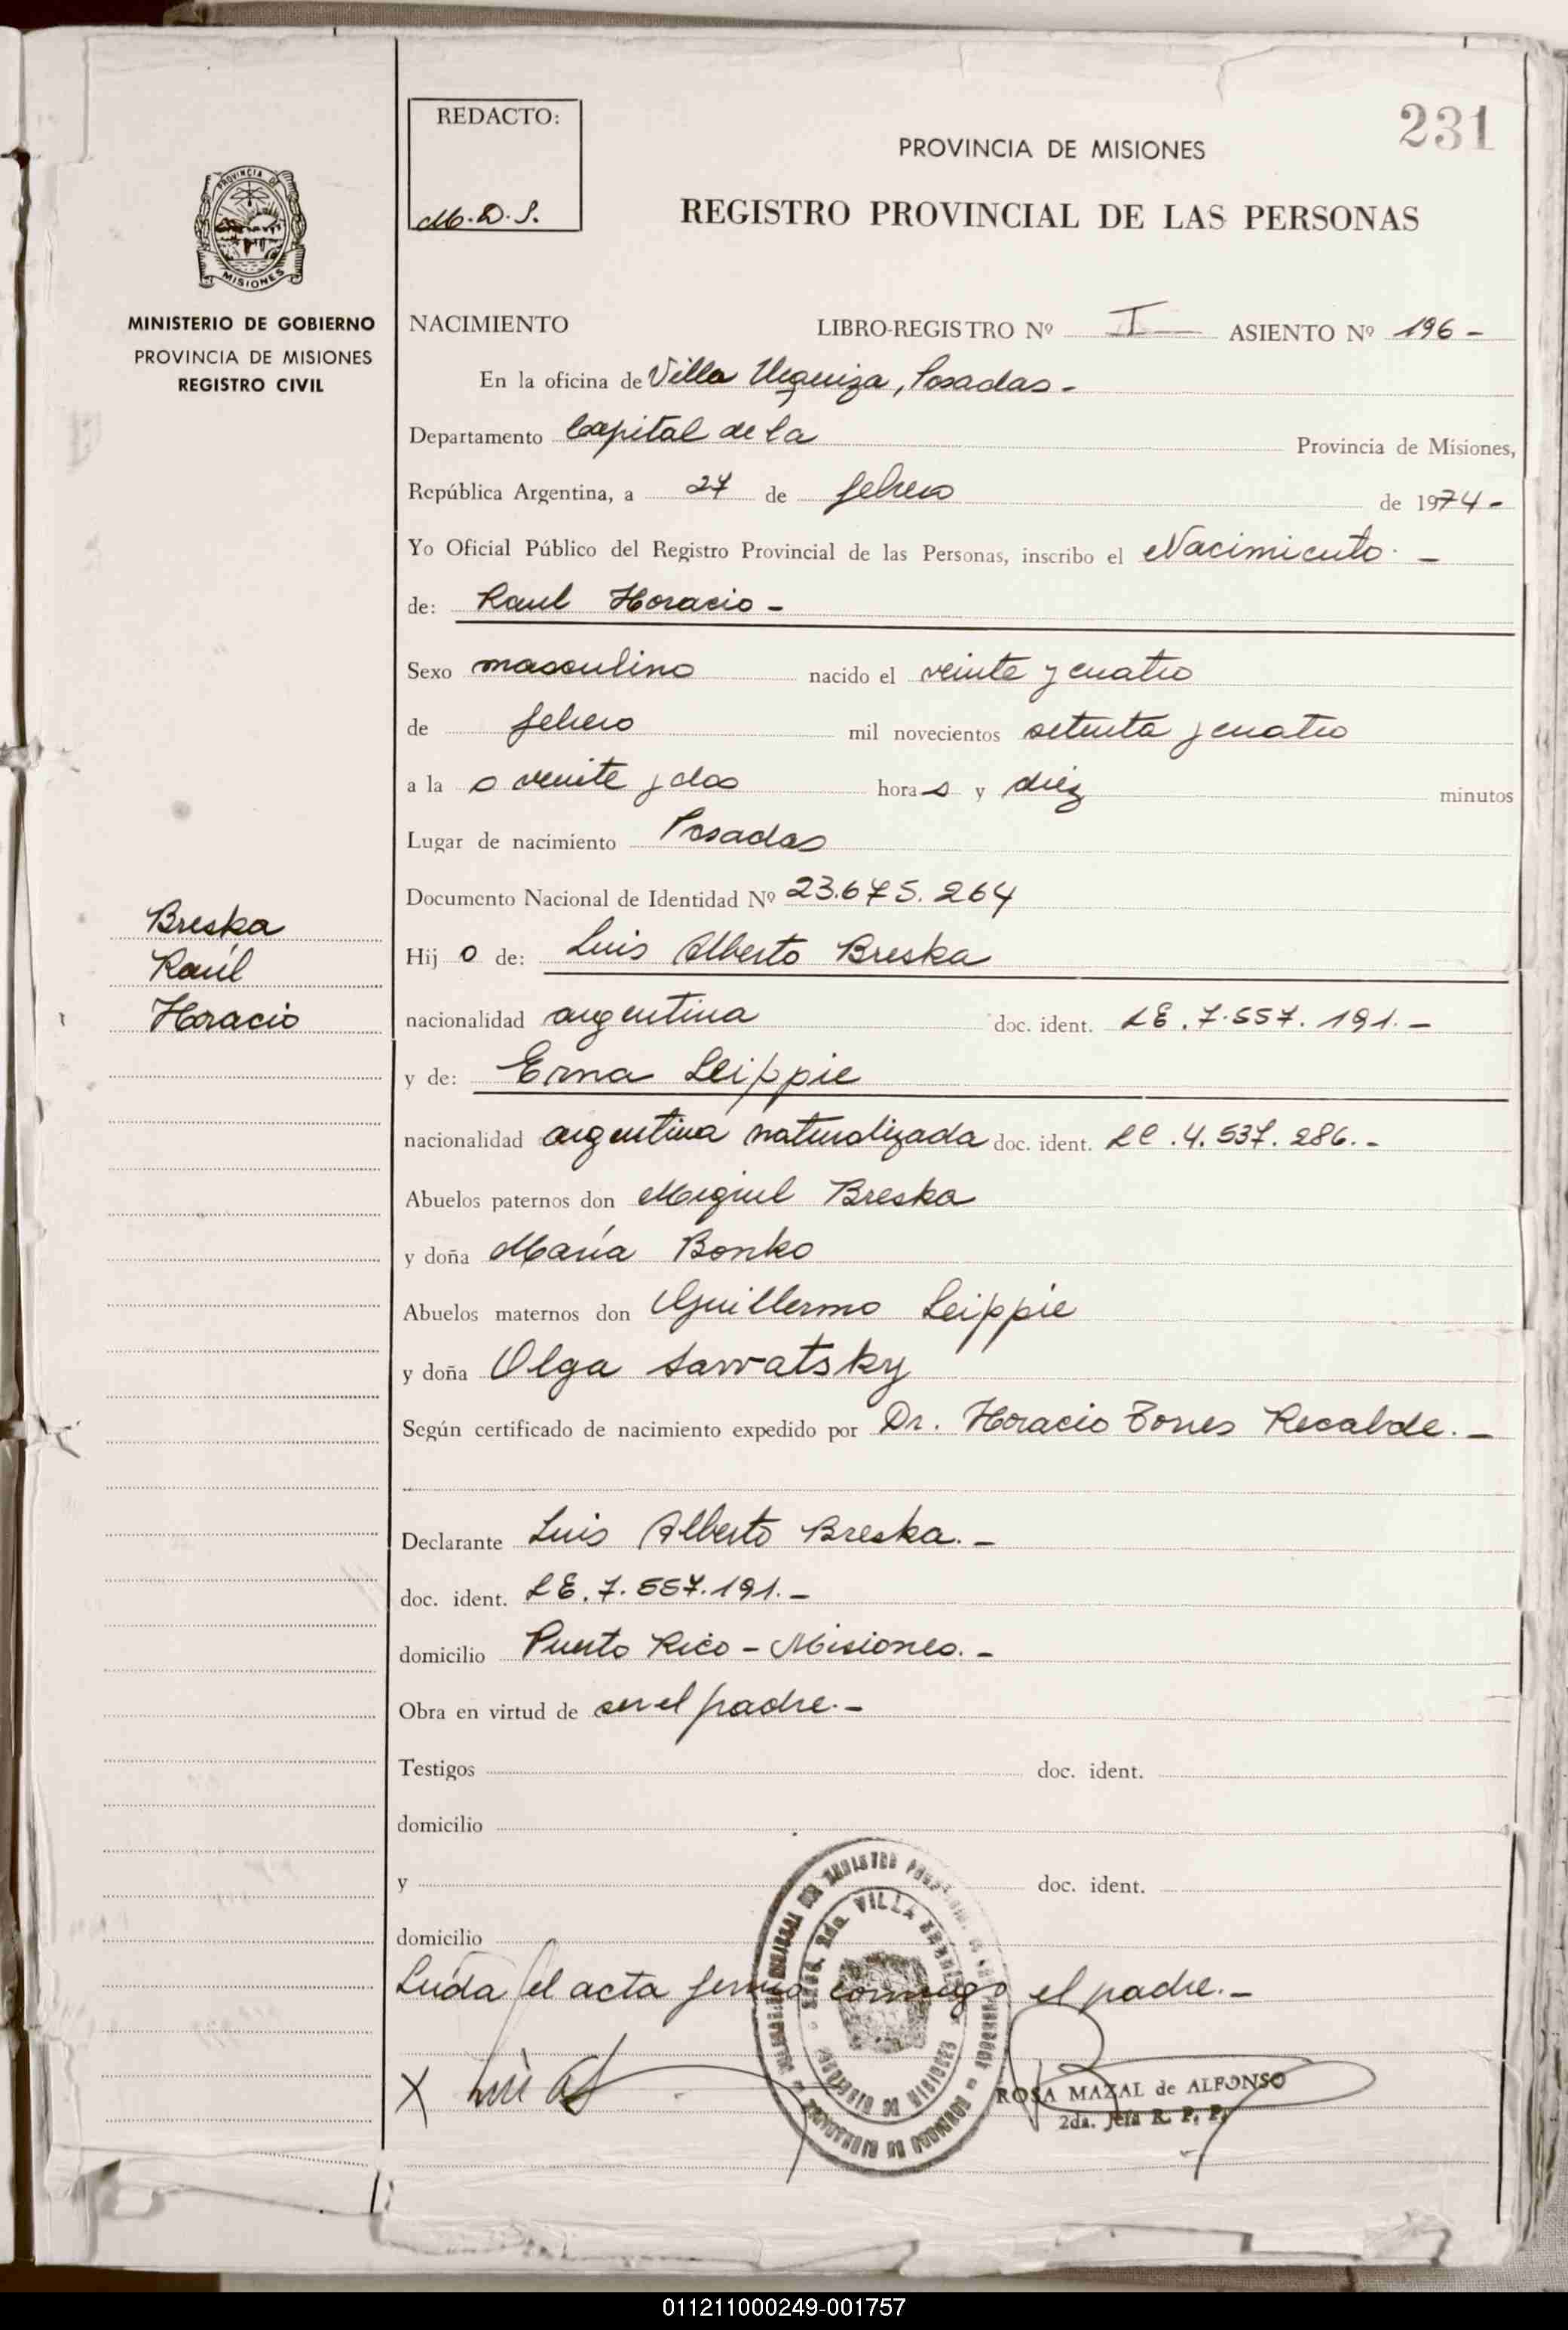 231
REDACTO:
M.D.S.
PROVINCIA DE MISIONES
REGISTRO PROVINCIAL DE LAS PERSONAS
PROVINCIA DE
MISIONES
MINISTERIO DE GOBIERNO
PROVINCIA DE MISIONES
REGISTRO CIVIL
NACIMIENTO LIBRO-REGISTRO Nº I ASIENTO Nº 196 -
En la oficina de Villa Urquiza, Posadas -
Departamento Capital de la Provincia de Misiones,
República Argentina, a 27 de febrero de 1974 -
Yo Oficial Público del Registro Provincial de las Personas, inscribo el Nacimiento. -
de: Raul Horacio -
Sexo masculino nacido el veinte y cuatro
de febrero mil novecientos setenta y cuatro
a la s veinte y dos hora s y diez minutos
Lugar de nacimiento Posadas
Documento Nacional de Identidad Nº 23.675.264
Breska
Raúl
Horacio
Hij o de: Luis Alberto Breska
nacionalidad argentina doc. ident. LE. 7.557.191. -
y de: Erna Leippie
nacionalidad argentina naturalizada doc. ident. LC. 4.537.286. -
Abuelos paternos don Miguel Breska
y doña María Bonko
Abuelos maternos don Guillermo Leippie
y doña Olga Sawatsky
Según certificado de nacimiento expedido por Dr. Horacio Torres Recalde. -
Declarante Luis Alberto Breska. -
doc. ident. LE. 7.557.191. -
domicilio Puerto Rico - Misiones. -
Obra en virtud de ser el padre. -
Testigos doc. ident.
domicilio
y doc. ident.
domicilio
Leída el acta firma conmigo el padre. -
X
ROSA MAZAL de ALFONSO
2da. Jefa R. P. P.
011211000249-001757